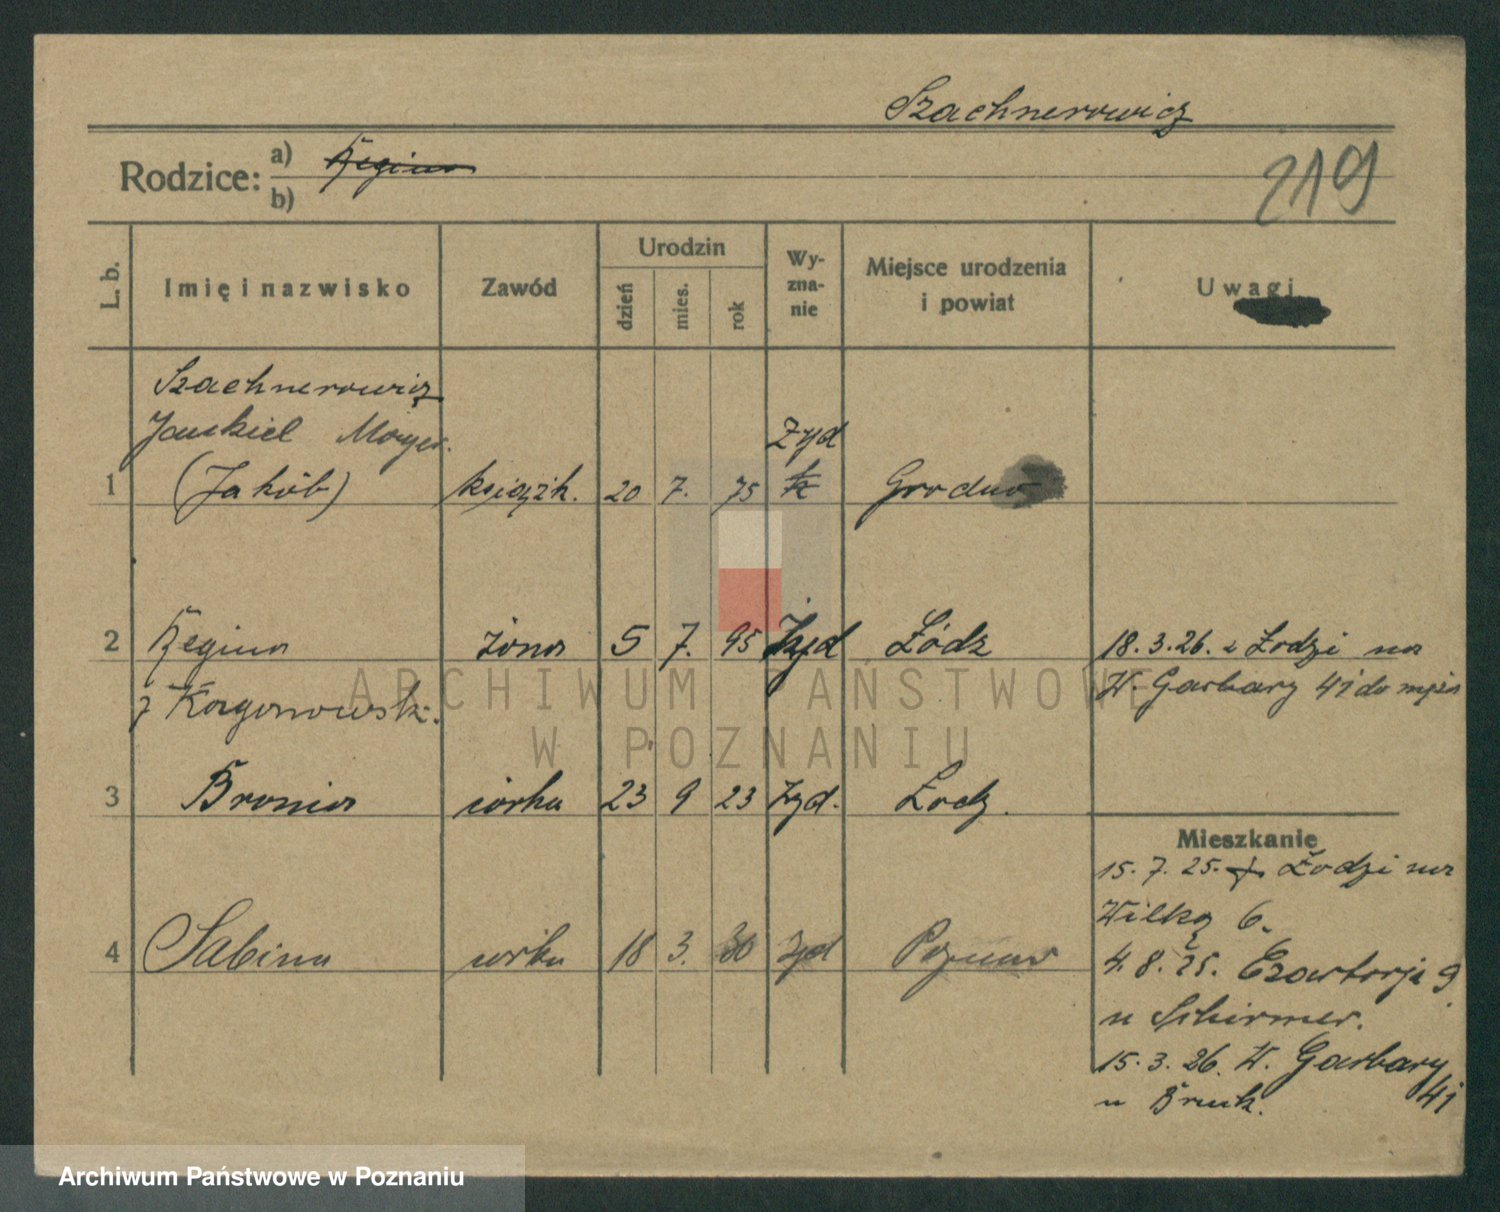 Szachnerowicz
Rodzice: a) Regina
b)
219
L. b. Imię i nazwisko Zawód Urodzin dzień mies. rok Wy-zna-nie Miejsce urodzenia i powiat Uwagi
Szachnerowicz
Jankiel Moryc.
Żyd
1 (Jakób) książk. 20 7. 75 Grodno
2 Regina żona 5 7. 95 Żyd Łódz 18.3.26. z Łodzi na
W. Garbary 41 do męża
3 Bronia córka 23 9 23 Żyd. Łodz.
4 Sabina córka 18 3. 30 Żyd Poznan
Mieszkanie
15. 7. 25. z Łodzi na
Wilką 6.
4. 8. 25. Czartorji 9
u Schirmer.
15. 3. 26. W. Garbary
41
u Bruck.
ARCHIWUM PAŃSTWOWE
W POZNANIU
Archiwum Państwowe w Poznaniu